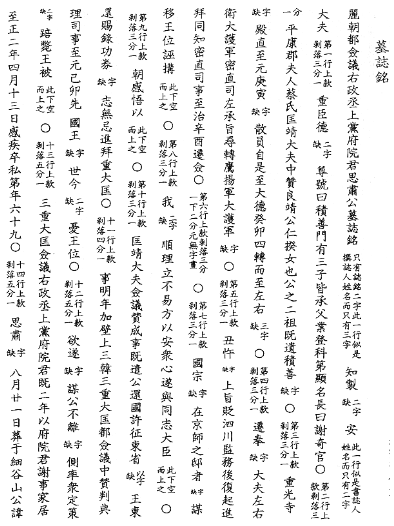 墓誌銘
麗朝都僉議右政丞上黨府院君思肅公墓誌銘 只有誌銘二字此一行似是撰誌人姓名而只有三字 知製 二字缺 安 此一行似是書誌人姓名而只有二字
大夫 第一行上款剝落三分一 重臣德 二字缺 尊號曰積善門有三子皆承父業登科第顯名長曰謝奇官〇 第二行上款剝落三
分一 平康郡夫人蔡氏匡靖大夫中贊良靖公仁揆女也公之二祖旣遺積善〇 第三行上款剝落三分一 重光寺
字缺 殿直至元庚寅 字缺 散員自是至大德癸卯四轉而至左右 三字缺 〇 第四行上款剝落三分一 遷奉 字缺 大夫左右
衛大護軍密直司左承旨尋轉鷹揚軍大護軍 字缺 〇 第五行上款剝落三分一 丑忤 字缺 上旨貶泗川監務後復起進
拜同知密直司事至治辛酉遷僉〇 第六行上款剝落三分一下二分元無字畫 〇 第七行上款剝落三分一 國宗 字缺 在京師之邸者 字缺 謀
移王位誣搆 此下空而上之 〇 第八行上款剝落三分一 我 二字缺 順理立不易方以安衆心遂與同志大臣 此下空而上之 〇
第九行上款剝落三分一 朝感悟以 此下空而上之 〇 第十行上款剝落三分一 匡靖大夫僉議贊成事旣遣公還國許征東省 以字缺 王東
還賜錄功券 字缺 志無忌進拜重大匡〇 十一行上款剝落四分一 事明年加壁上三韓三重大匡都僉議中贊判典
理司事至元己卯先 國王 字缺 世今 二字缺 憂王位〇 十二行上款剝落五分一 欲遂 字缺 謀公不離 字缺 側率衆定策
二字缺 踣斃王被 此下空而上之 〇 十三行上款剝落五分一 三重大匡僉議右政丞上黨府院君旣二年以府院君謝事家居
至正二年四月十三日感疾卒私第年六十九〇 十四行上款剝落五分一 思肅 字缺 八月廿一日葬于細谷山公諱